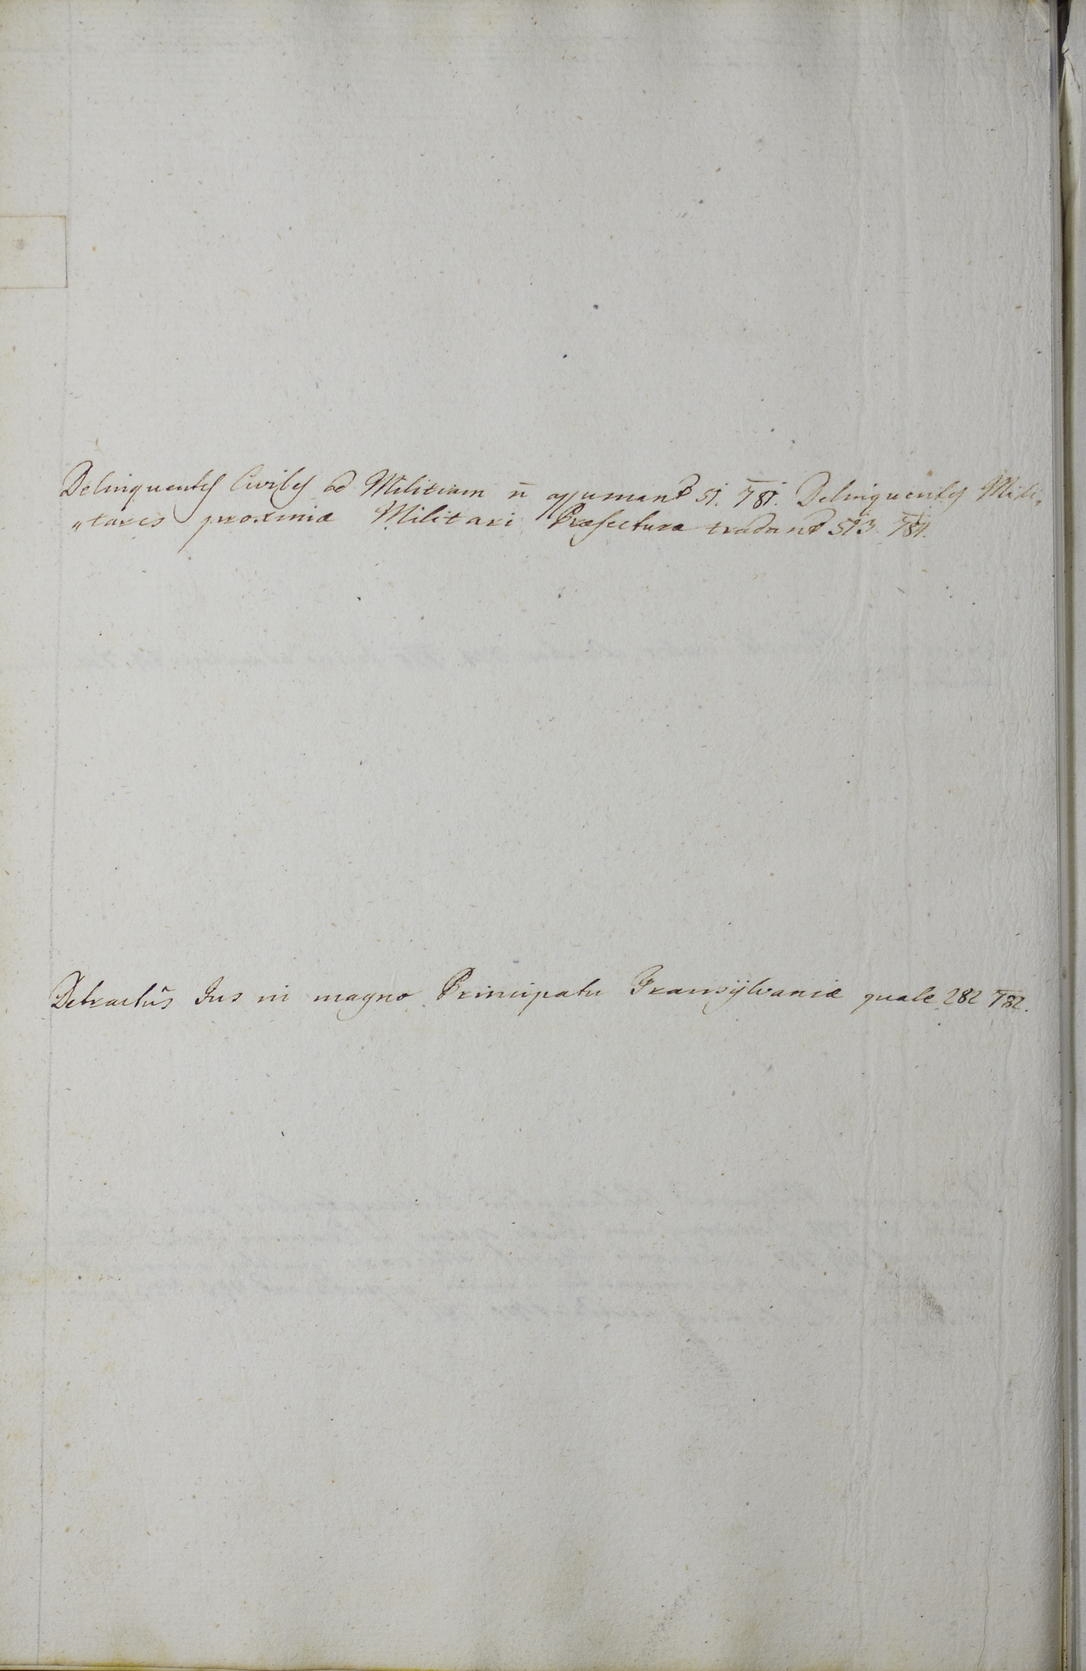 Delinquentes Civiles ad Militiam n̄ assumant 51. 781. Delinquentes Mili-
„tares proximæ Militari Præfecturæ tradant 513 781.
Detractûs Jus in magno Principatu Transÿlvaniæ quale 282 782.